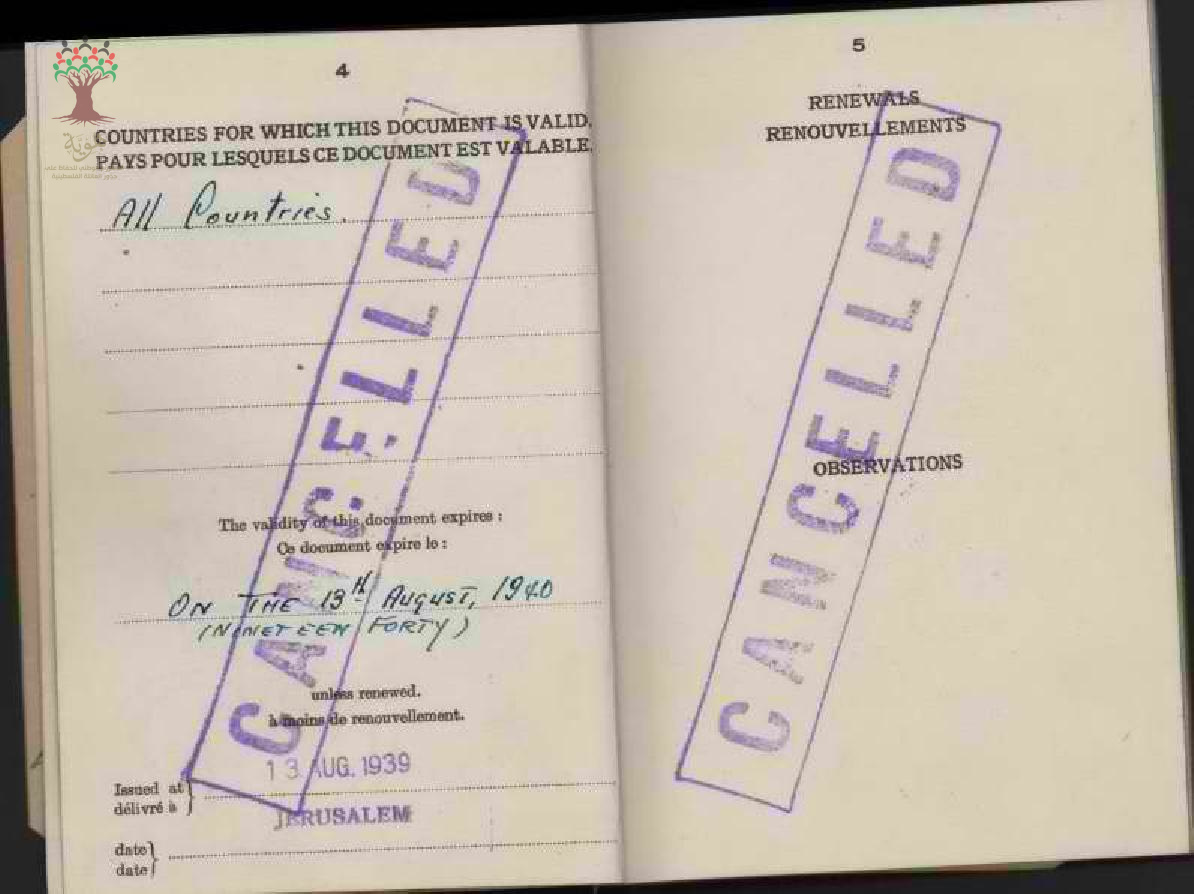 4
COUNTRIES FOR WHICH THIS DOCUMENT IS VALID.
PAYS POUR LESQUELS CE DOCUMENT EST VALABLE.
All Countries.
CANCELLED
The validity of this document expires :
Ce document expire le :
ON THE 13th AUGUST, 1940
(NINETEEN FORTY)
unless renewed.
à moins de renouvellement.
13 AUG. 1939
Issued at
délivré à
JERUSALEM
date
date
5
RENEWALS
RENOUVELLEMENTS
CANCELLED
OBSERVATIONS